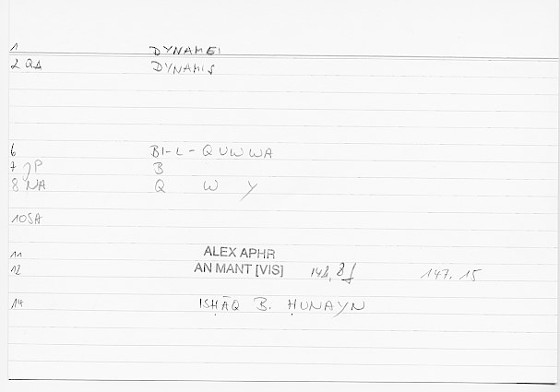 1 DYNAMEI
2 QA DYNAMIS
6 BI-L-QUWWA
7 JP B
8 NA Q W Y
10 SA
11 ALEX APHR
12 AN MANT [VIS] 147. 15
14 ISḤĀQ B. ḤUNAYN